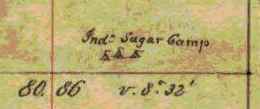 Ind.ⁿ Sugar Camp
80.86 v. 8.° 32'